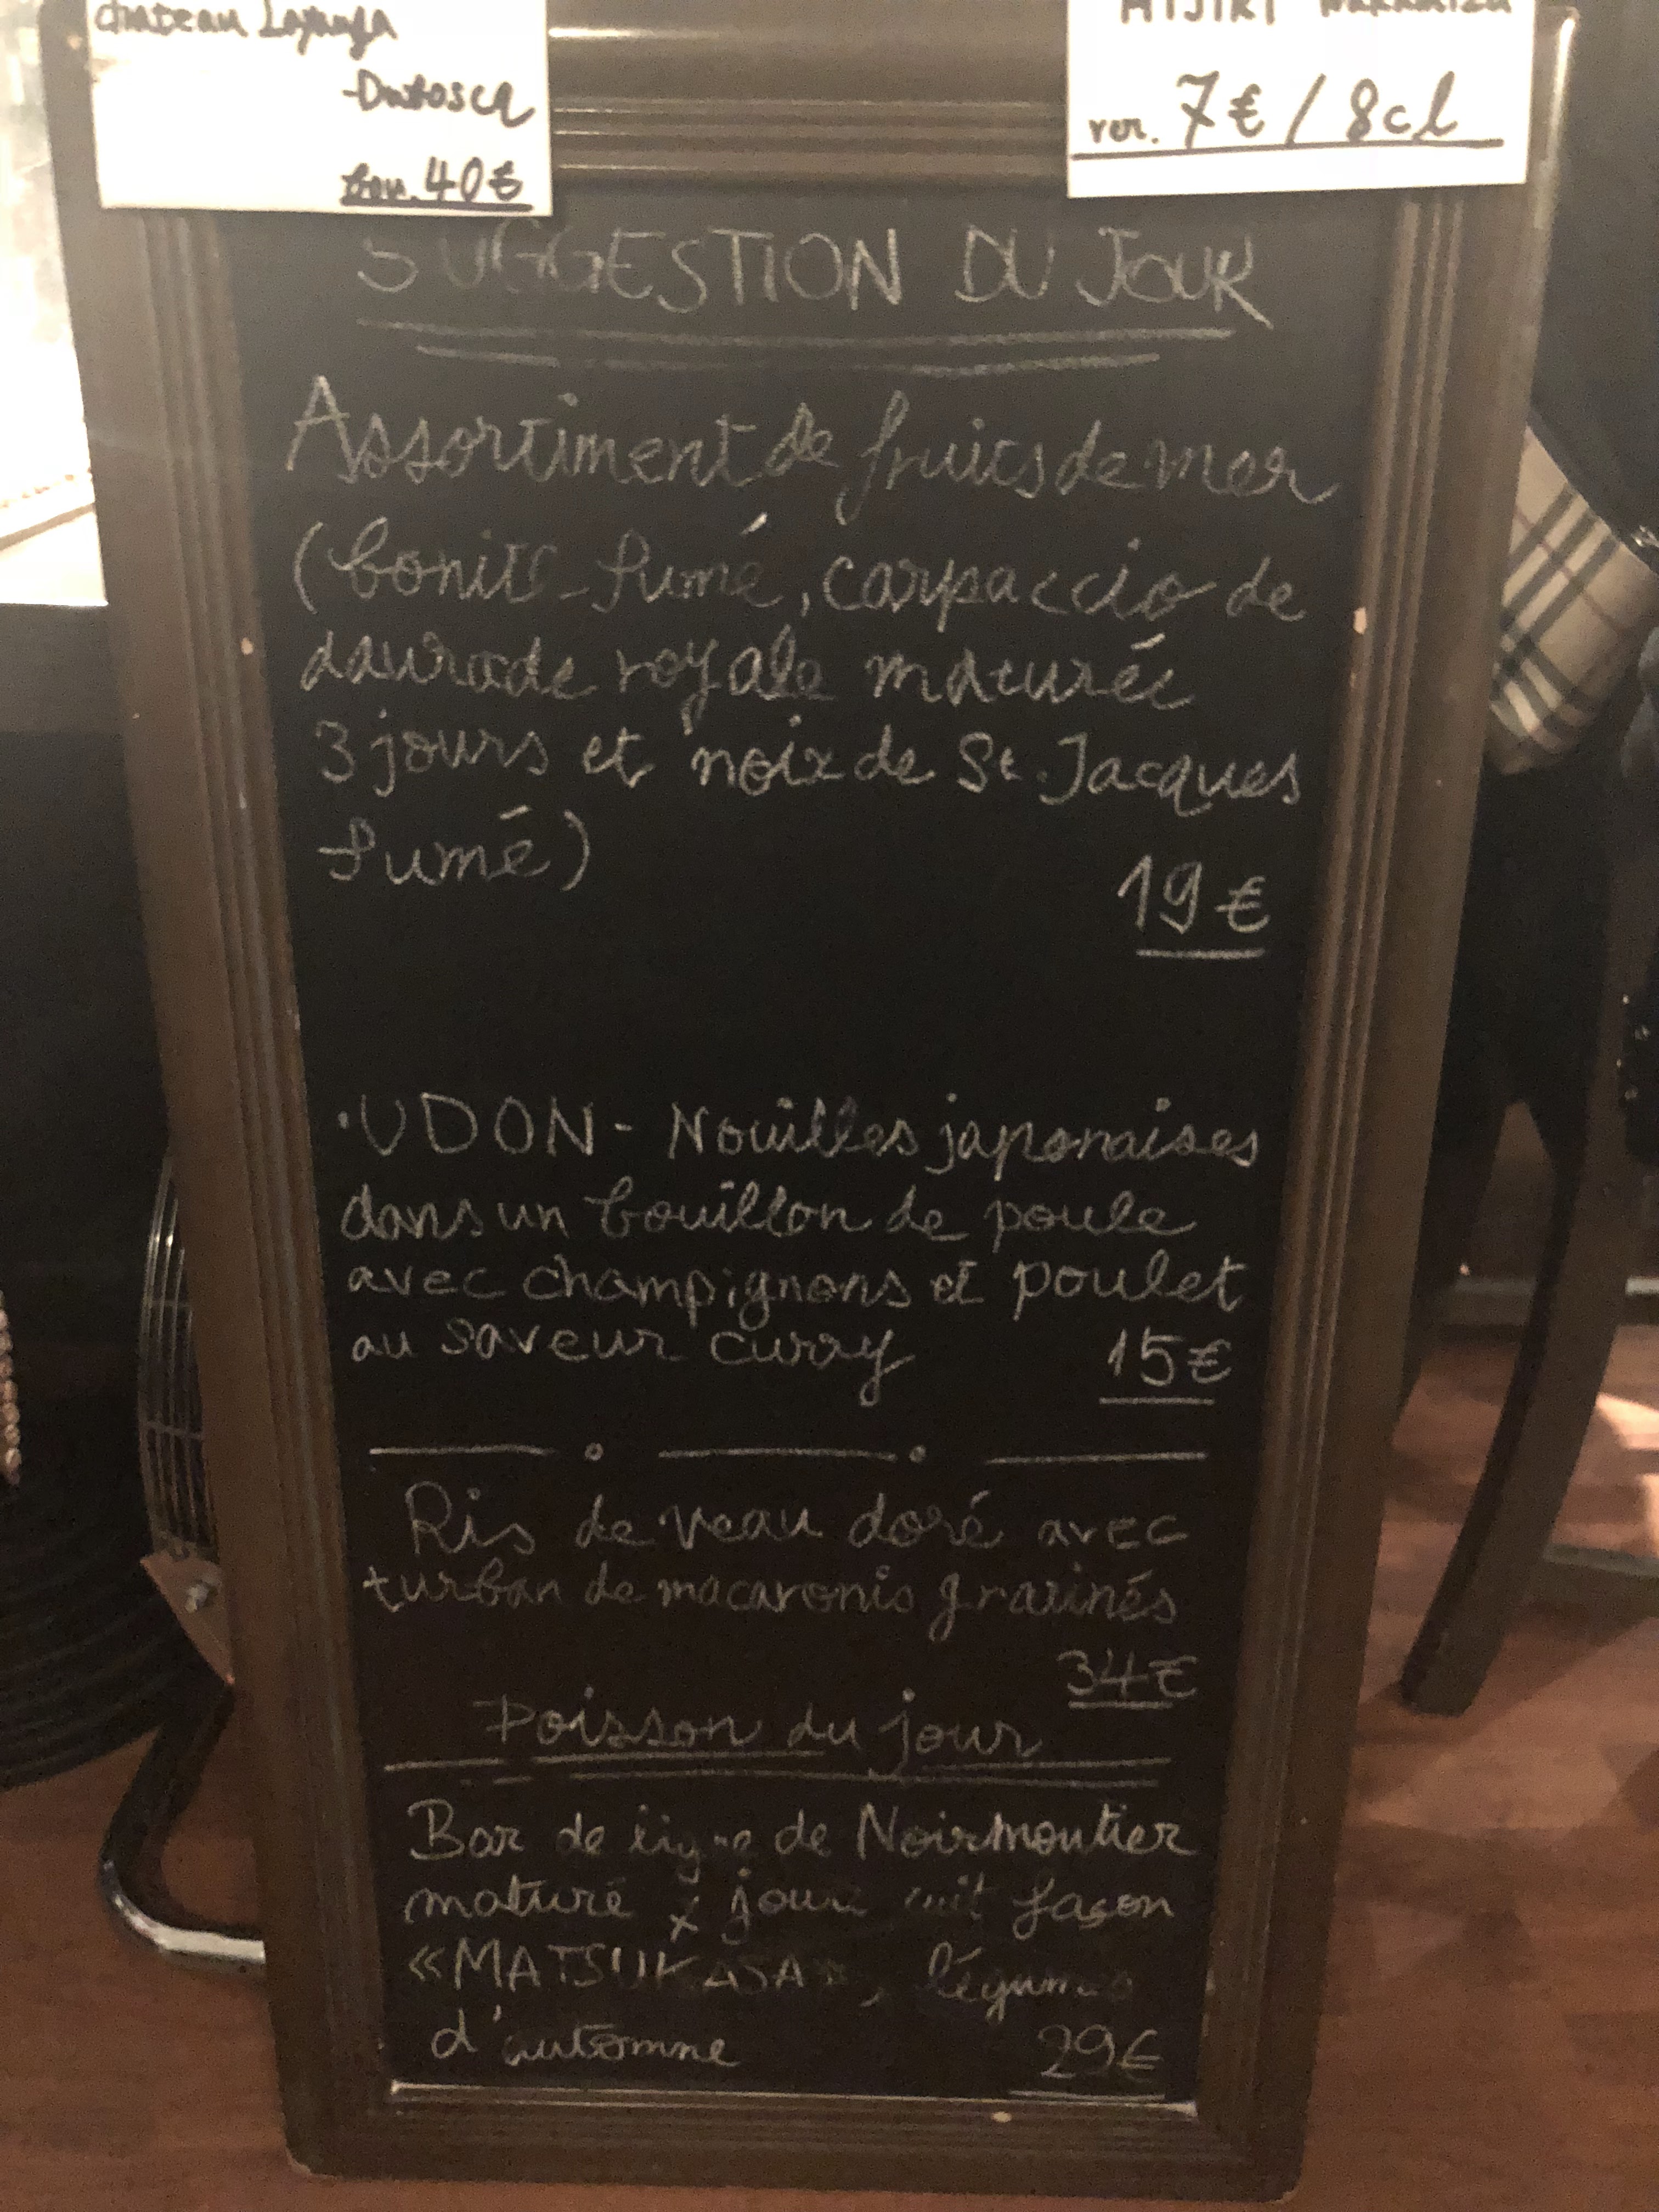 chateau
-Duboscq
bou. 40€
HIJIKI
ver. 7€ / 8cl
SUGGESTION DU JOUR
Assortiment de fruits de mer
(bonite-fumé, carpaccio de
daurade royale maturée
3 jours et noix de St. Jacques
fumé)
19€
·UDON - Nouilles japonaises
dans un bouillon de poule
avec champignons et poulet
au saveur curry 15€
Ris de veau doré avec
turban de macaronis gratinés
34€
Poisson du jour
Bar de ligne de Noirmoutier
maturé jours cuit façon
«MATSUKASA», légumes
d'automne 29€